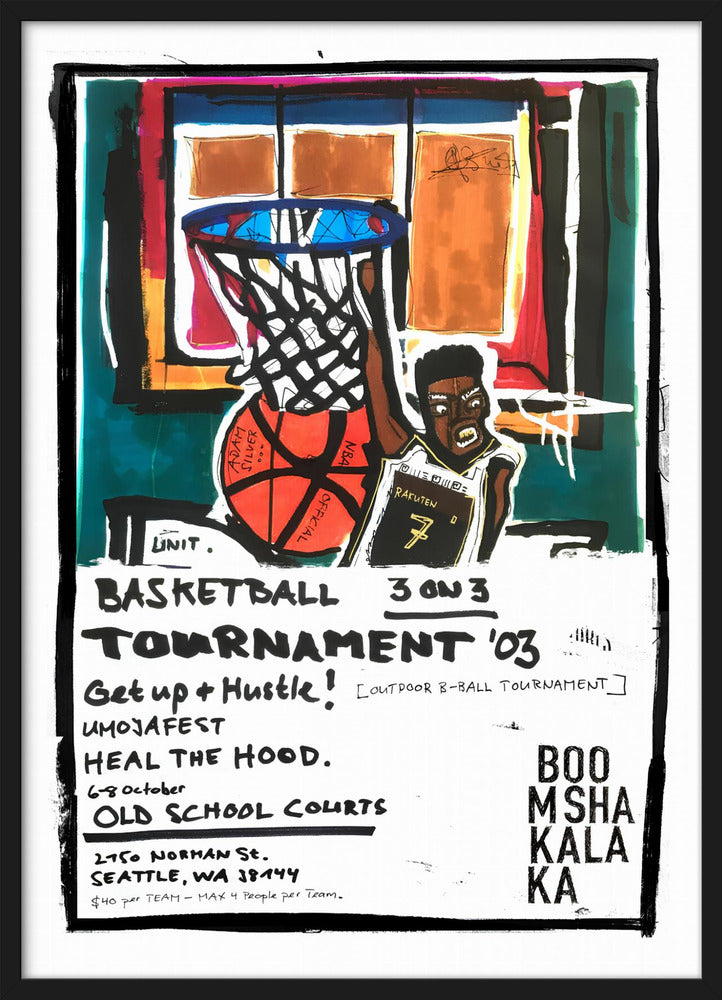 ADAM
SILVER
NBA
OFFICIAL
RAKUTEN
7
UNIT.
BASKETBALL 3 ON 3
TOURNAMENT '03
Get up + Hustle! [OUTDOOR B-BALL TOURNAMENT]
UMOJAFEST
HEAL THE HOOD.
6-8 October
OLD SCHOOL COURTS
2750 NORMAN St.
SEATTLE, WA 38144
$40 per TEAM – MAX 4 People per Team.
BOO
MSHA
KALA
KA